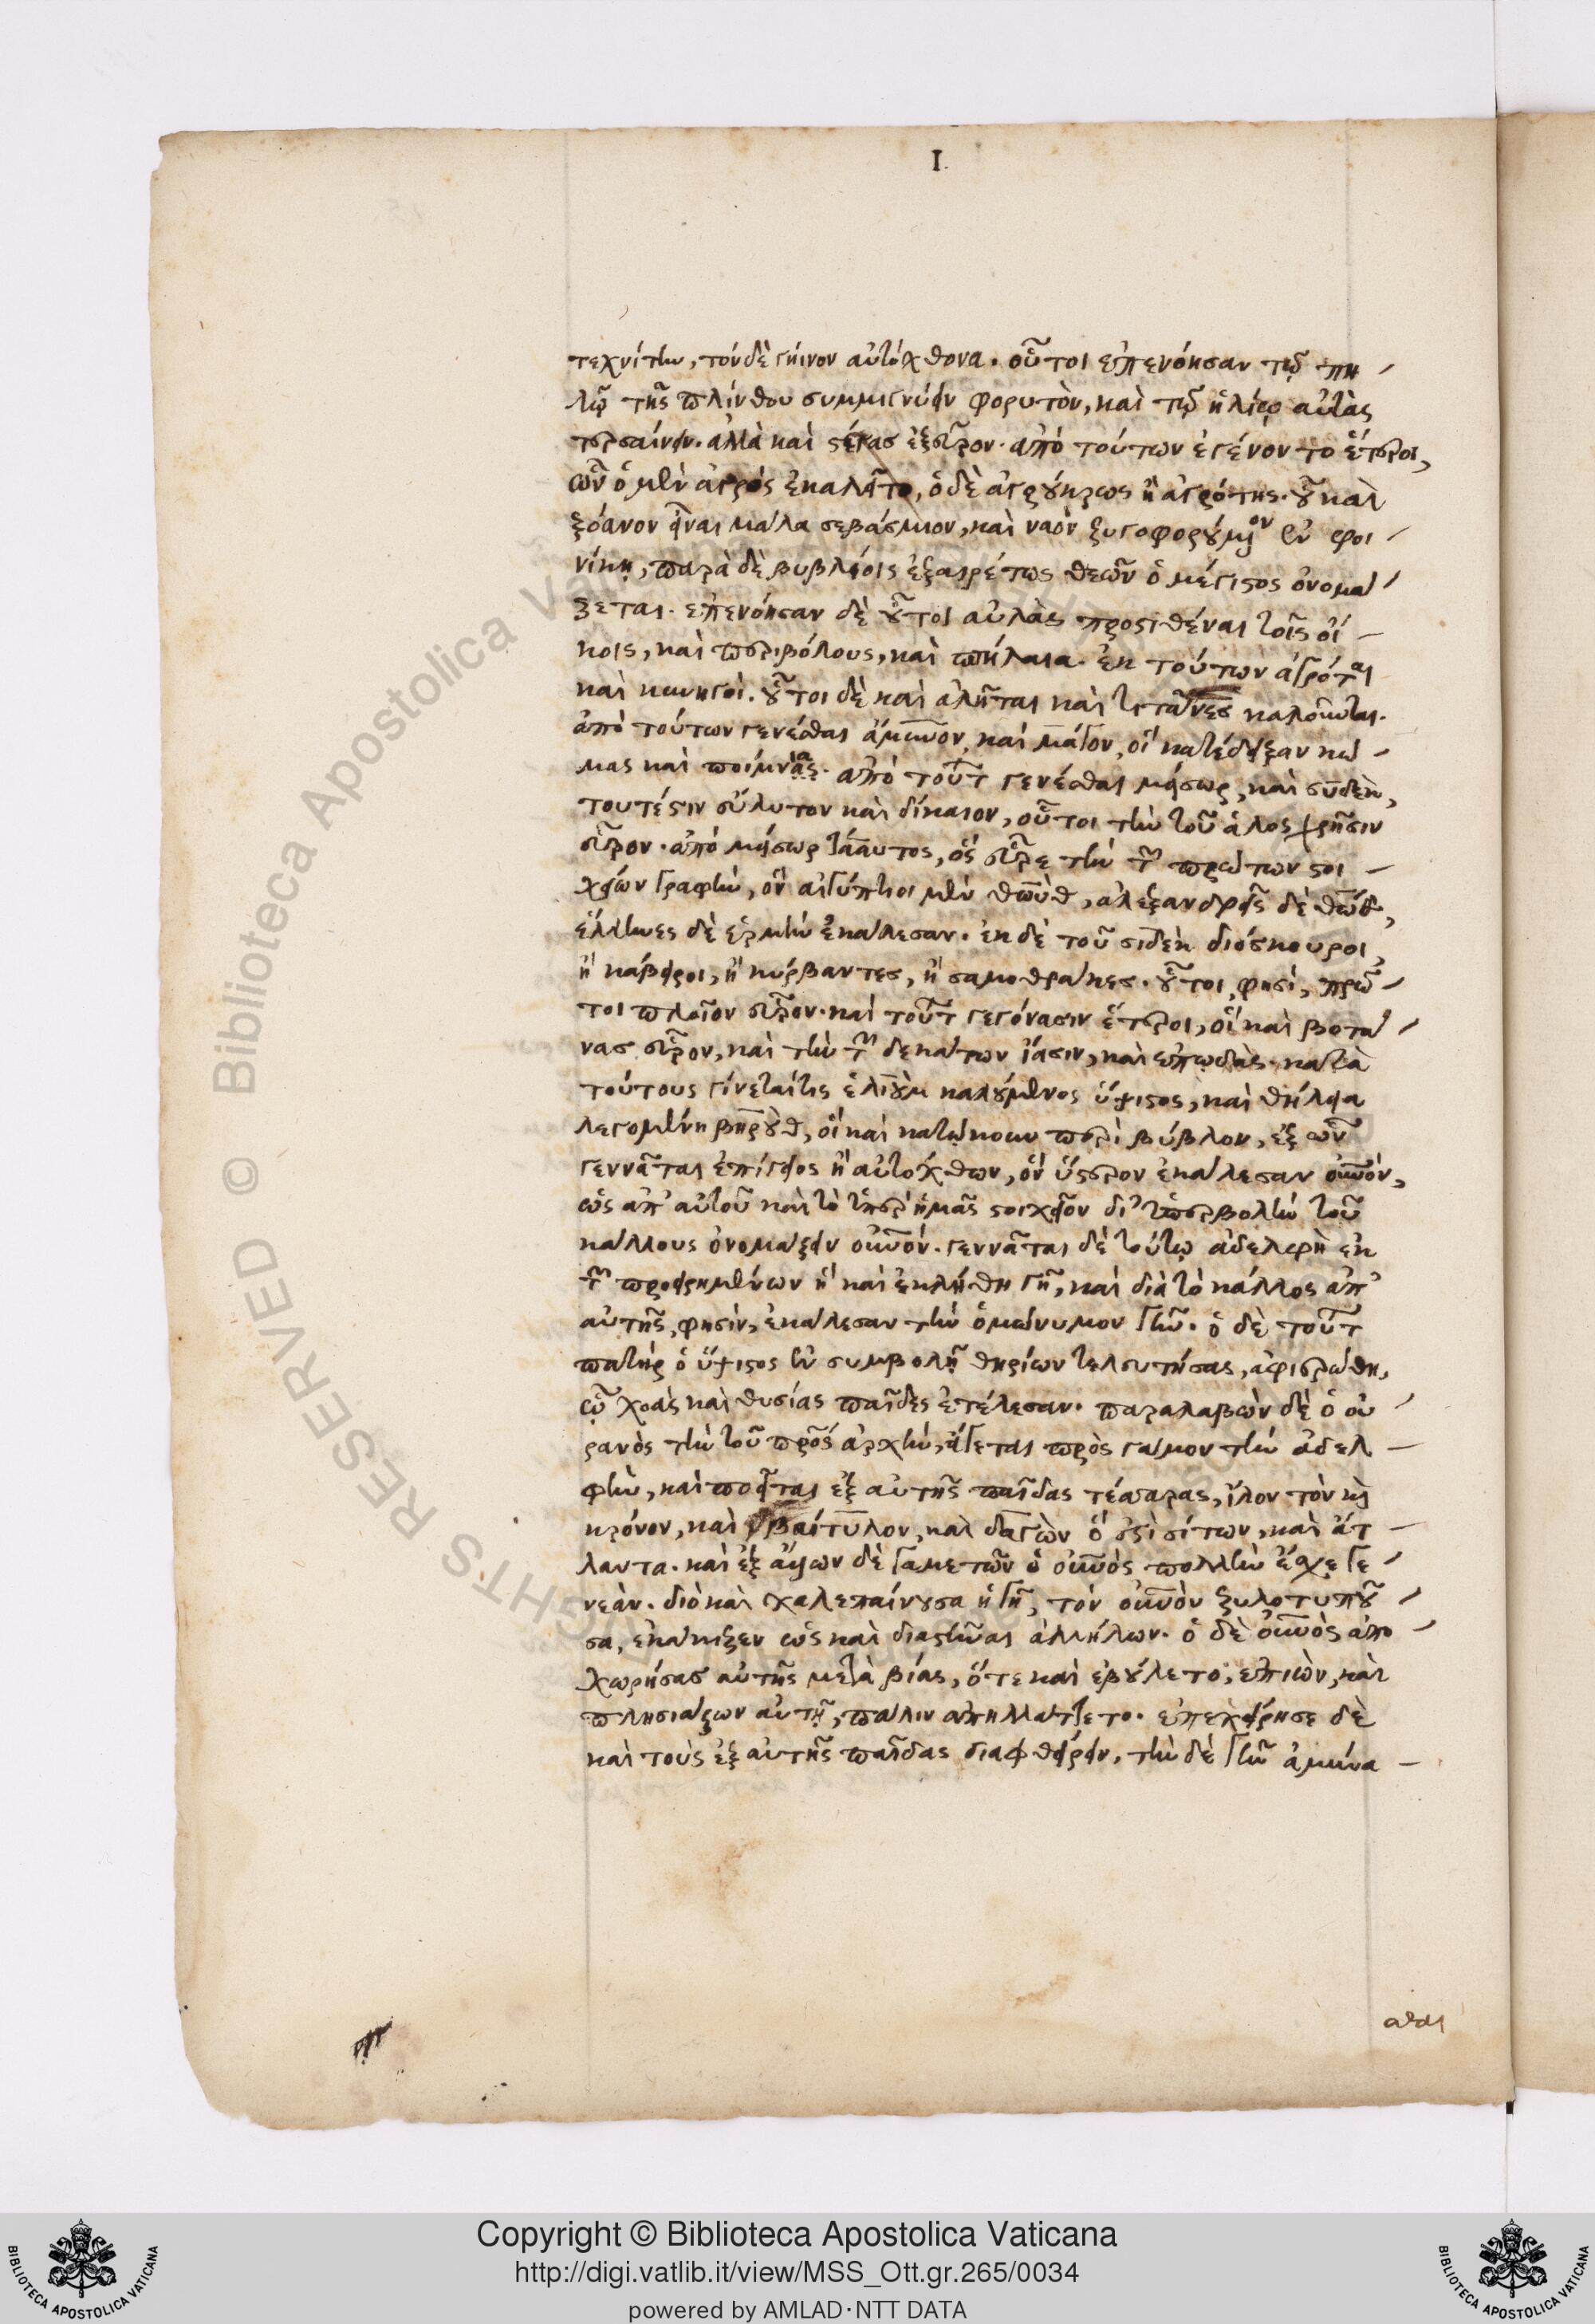 I.
τεχνίτην, τὸν δὲ γήινον αὐτόχθονα. οὗτοι ἐπενόησαν τῷ πη
λῷ τῆς πλίνθου συμμιγνύειν φορυτὸν, καὶ τῷ ἡλίῳ αὐτὰς
τερσαίνειν. ἀλλὰ καὶ στέγας ἐξεῦρον. ἀπὸ τούτων ἐγένοντο ἕτεροι,
ὧν ὁ μὲν ἀγρός ἐκαλεῖτο, ὁ δὲ ἀγρούηρως ἢ ἀγρότης. οὗ καὶ
ξόανον εἶναι μάλα σεβάσμιον, καὶ ναὸν ζυγοφορούμενον ἐν φοι
νίκῃ, παρὰ δὲ βυβλίοις ἐξαιρέτως θεῶν ὁ μέγιστος ὀνομά
ζεται. ἐπενόησαν δὲ οὗτοι αὐλὰς προστιθέναι τοῖς οἴ
κοις, καὶ περιβόλους, καὶ σπήλαια. ἐκ τούτων ἀγρόται
καὶ κυνηγοί. οὗτοι δὲ καὶ ἀλῆται καὶ τιτᾶνες καλοῦνται.
ἀπὸ τούτων γενέσθαι ἄμυνον, καὶ μάγον, οἳ κατέδειξαν κώ
μας καὶ ποίμνας. ἀπὸ τούτων γενέσθαι μεισωρ, καὶ συδεκ,
τουτέστιν εὔλυτον καὶ δίκαιον, οὗτοι τὴν τοῦ ἁλὸς χρῆσιν
εὗρον. ἀπὸ μεισωρ τάαυτος, ὃς εὗρε τὴν τῶν πρώτων στοι
χείων γραφὴν, ὃν αἰγύπτιοι μὲν θωύθ, ἀλεξανδρεῖς δὲ θώθ,
ἕλληνες δὲ ἑρμῆν ἐκάλεσαν. ἐκ δὲ τοῦ σιδεκ διόσκουροι,
ἢ κάβειροι, ἢ κύρβαντες, ἢ σαμοθρᾷκες. οὗτοι, φησὶ, πρῶ
τοι πλοῖον εὗρον. καὶ τούτων γεγόνασιν ἕτεροι, οἳ καὶ βοτά
νας εὗρον, καὶ τὴν τῶν δεκάτων ἴασιν, καὶ ἐπῳδάς. κατὰ
τούτους γίνεταί τις ἐλιοὺμ καλούμενος ὕψιστος, καὶ θήλεια
λεγομένη βηρούθ, οἳ καὶ κατῴκουν περὶ βύβλον, ἐξ ὧν
γεννᾶται ἐπίγειος ἢ αὐτόχθων, ὃν ὕστερον ἐκάλεσαν οὐρανόν,
ὡς ἀπ' αὐτοῦ καὶ τὸ ὑπὲρ ἡμᾶς στοιχεῖον δι' ὑπερβολὴν τοῦ
κάλλους ὀνομάζειν οὐρανόν. γεννᾶται δὲ τούτῳ ἀδελφὴ ἐκ
τῶν προειρημένων ἣ καὶ ἐκλήθη γῆ, καὶ διὰ τὸ κάλλος ἀπ'
αὐτῆς, φησὶν, ἐκάλεσαν τὴν ὁμώνυμον γῆν. ὁ δὲ τούτων
πατὴρ ὁ ὕψιστος ἐν συμβολῇ θηρίων τελευτήσας, ἀφιερώθη,
ᾧ χοὰς καὶ θυσίας παῖδες ἐτέλεσαν. παραλαβὼν δὲ ὁ οὐ
ρανὸς τὴν τοῦ πατρός ἀρχὴν, ἄγεται πρὸς γάμον τὴν ἀδελ
φὴν, καὶ ποιεῖται ἐξ αὐτῆς παῖδας τέσσαρας, ἶλον τὸν καὶ
κρόνον, καὶ βαίτυλον, καὶ δαγὼν ὅ ἐστι σίτων, καὶ ἄτ
λαντα. καὶ ἐξ ἄλλων δὲ γαμετῶν ὁ οὐρανὸς πολλὴν ἔσχε γε
νεάν. διὸ καὶ χαλεπαίνουσα ἡ γῆ, τὸν οὐρανὸν ζηλοτυποῦ
σα, ἐκάκιζεν ὡς καὶ διαστῆναι ἀλλήλων. ὁ δὲ οὐρανὸς ἀπο
χωρήσας αὐτῆς μετὰ βίας, ὅτε καὶ ἐβούλετο, ἐπιὼν, καὶ
πλησιάζων αὐτῇ, πάλιν ἀπηλλάττετο. ἐπεχείρησε δὲ
καὶ τοὺς ἐξ αὐτῆς παῖδας διαφθείρειν, τὴν δὲ γῆν ἀμύνα
σθαι
Copyright © Biblioteca Apostolica Vaticana
http://digi.vatlib.it/view/MSS_Ott.gr.265/0034
powered by AMLAD·NTT DATA